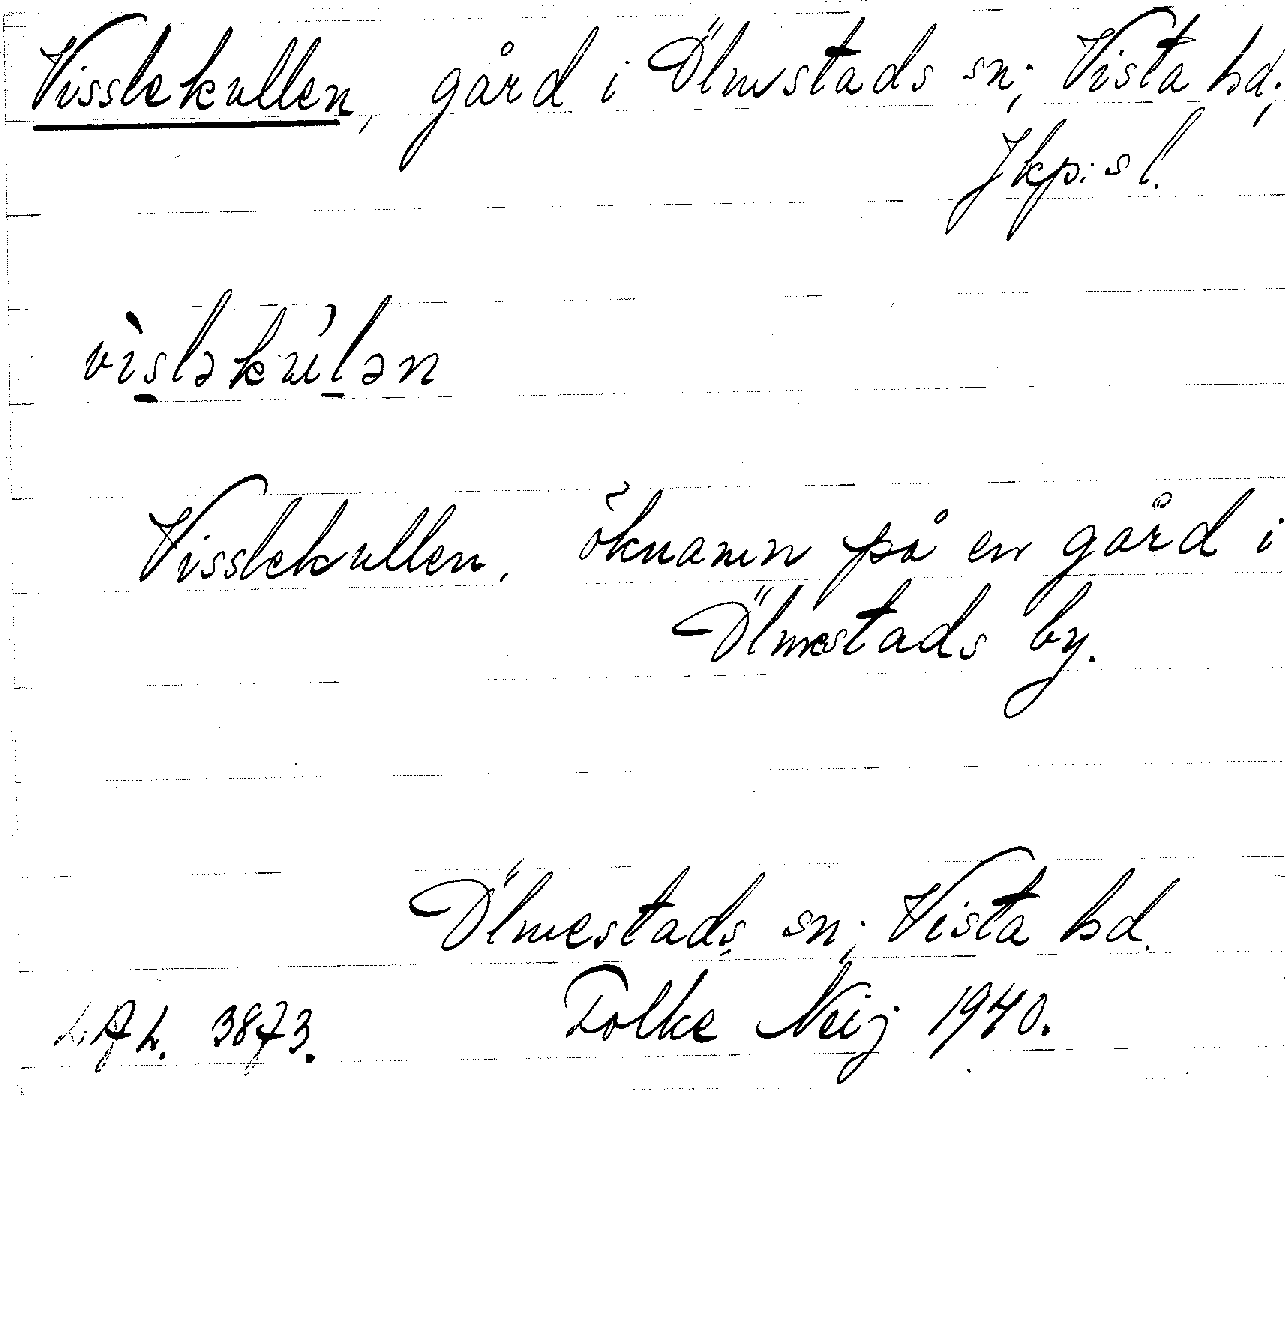 Visslekullen, gård i Ölmstads sn; Vista hd;
Jkp:s l.
vìs̲ləkúl̲ən
Visslekullen, öknamn på en gård i
Ölmestads by.
Ölmestads sn; Vista hd.
Folke Neij 1940.
L.A.L. 3873.